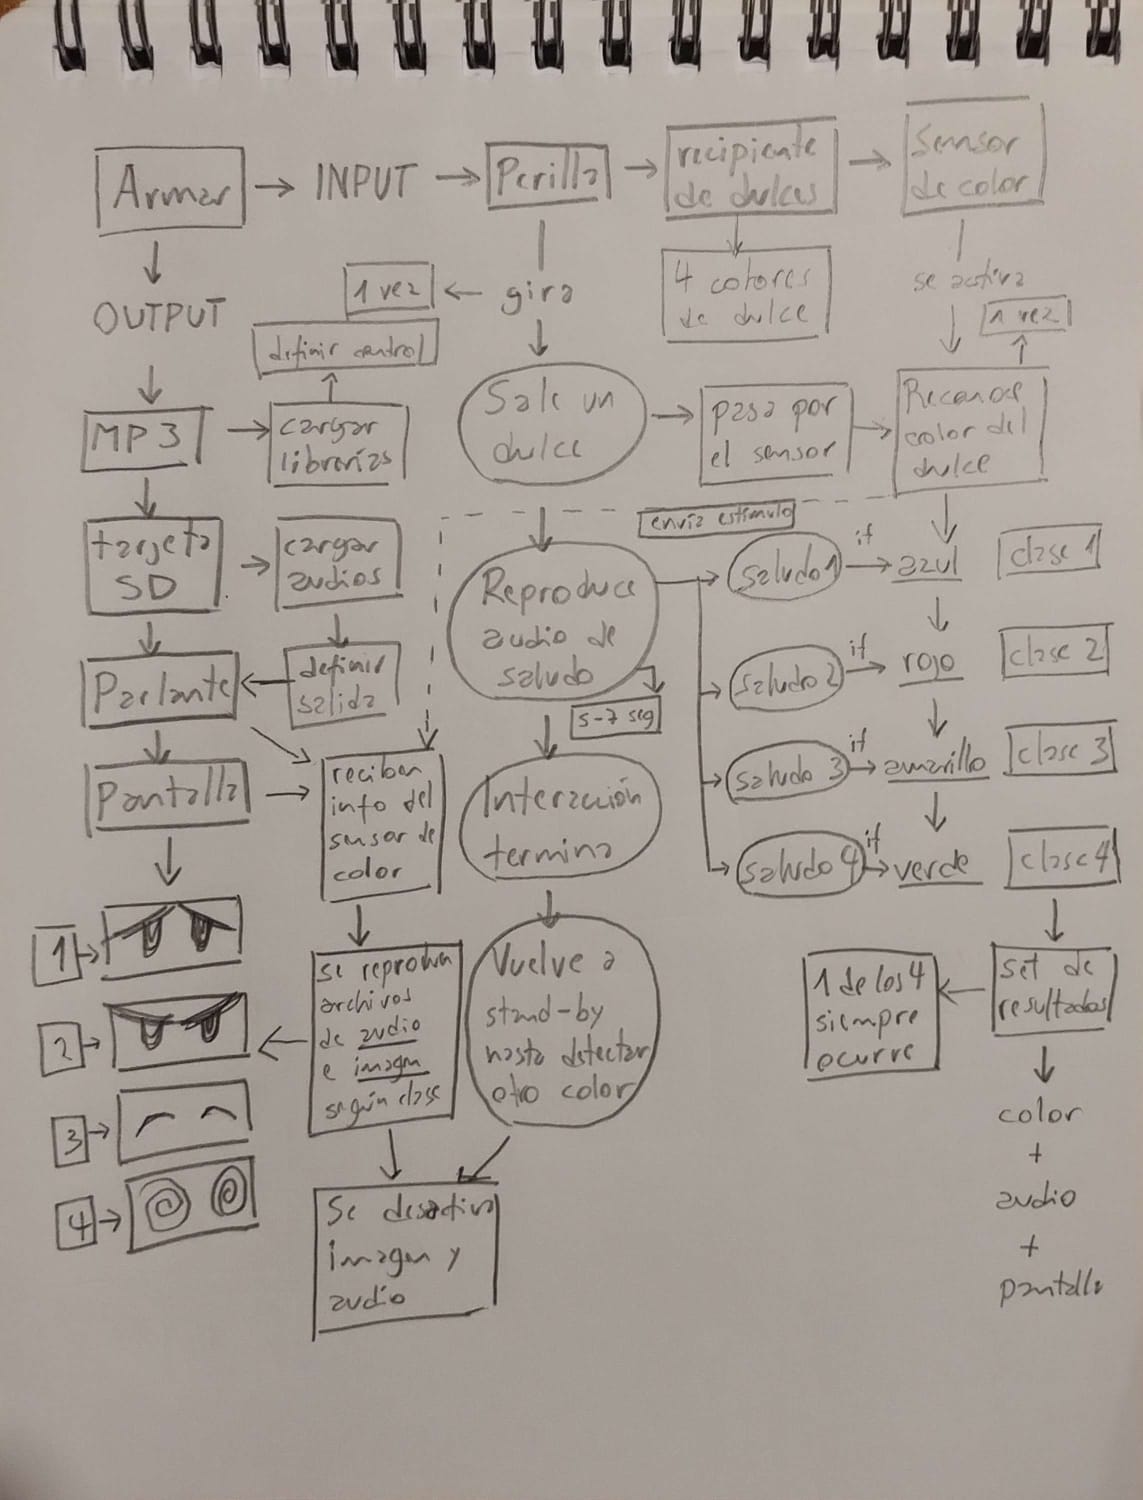 Armar
INPUT
Perilla
recipiente
de dulces
Sensor
de color
OUTPUT
1 vez
gira
4 colores
de dulce
se activa
1 vez
definir control
MP3
cargar
librerías
Sale un
dulce
pasa por
el sensor
Reconoce
color del
dulce
envía estímulo
tarjeta
SD
cargar
audios
Reproduce
audio de
saludo
5-7 seg
saludo 1
if
azul
clase 1
saludo 2
if
rojo
clase 2
saludo 3
if
amarillo
clase 3
saludo 4
if
verde
clase 4
Parlante
definir
salida
Pantalla
reciban
info del
sensor de
color
Interacción
termina
1
2
3
4
se reproducen
archivos
de audio
e imagen
según clase
Vuelve a
stand-by
hasta detectar
otro color
1 de los 4
siempre
ocurre
set de
resultados
color
+
audio
+
pantalla
Se desactiva
imagen y
audio